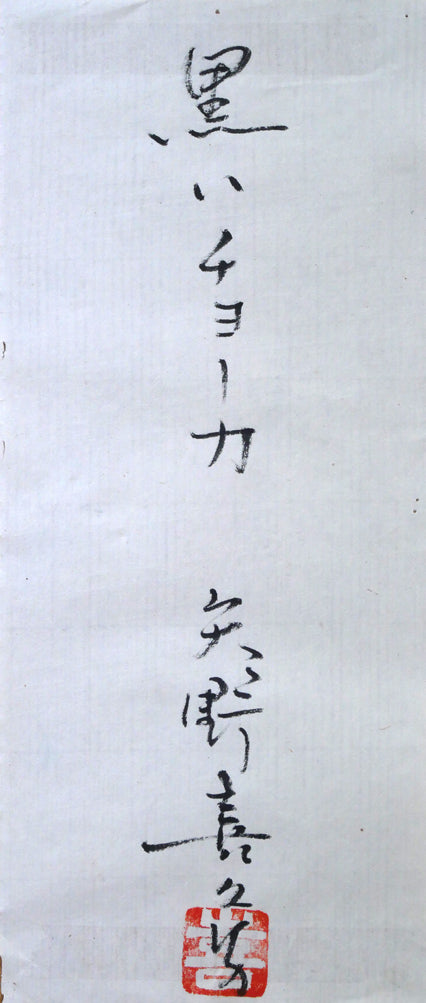 黒いチョーカ 矢野喜久男